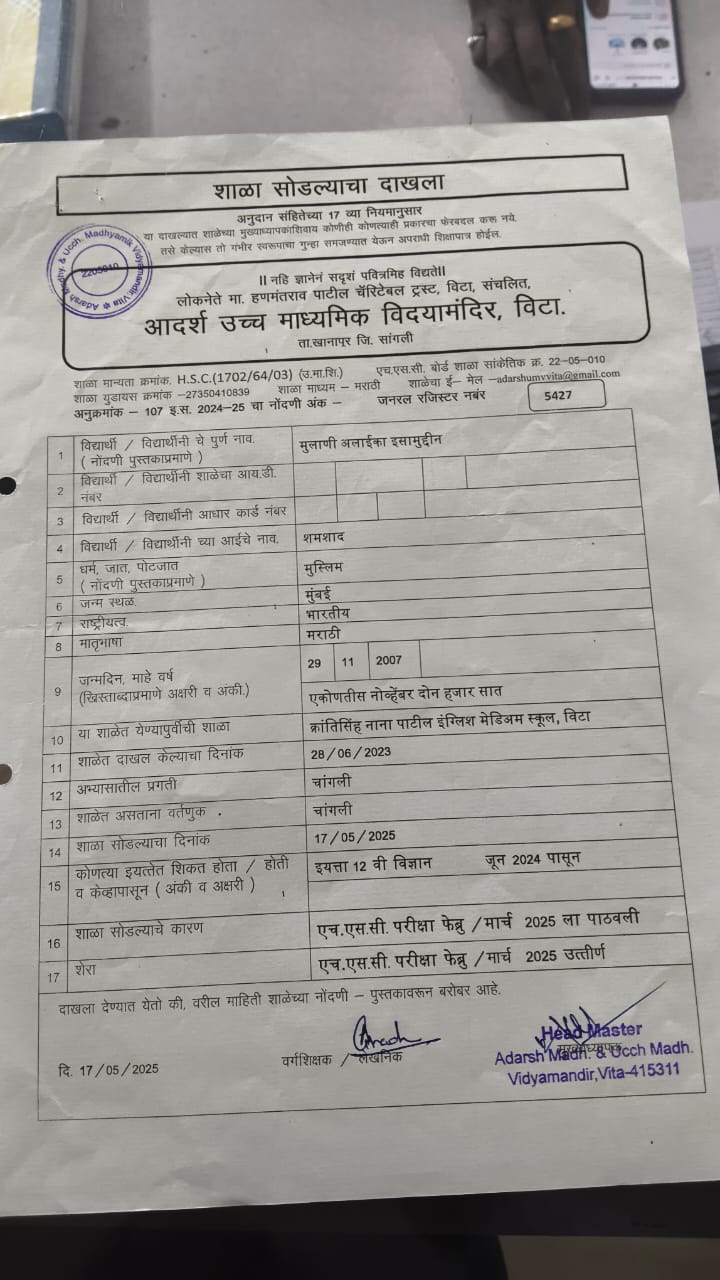 शाळा सोडल्याचा दाखला
अनुदान संहितेच्या 17 व्या नियमानुसार
या दाखल्यात शाळेच्या मुख्याध्यापकांशिवाय कोणीही कोणत्याही प्रकारचा फेरबदल करू नये.
तसे केल्यास तो गंभीर स्वरूपाचा गुन्हा समजण्यात येऊन अपराधी शिक्षापात्र होईल.
Adarsh Madhy. & Ucch. Madhyamik Vidyamandir Vita
2205010
॥ नहि ज्ञानेनं सदृशं पवित्रमिह विद्यते॥
लोकनेते मा. हणमंतराव पाटील चॅरिटेबल ट्रस्ट, विटा, संचलित,
आदर्श उच्च माध्यमिक विदयामंदिर, विटा.
ता.खानापूर जि. सांगली
शाळा मान्यता क्रमांक. H.S.C.(1702/64/03) (उ.मा.शि.) एच.एस.सी. बोर्ड शाळा सांकेतिक क्र. 22-05-010
शाळा युडायस क्रमांक –27350410839 शाळा माध्यम – मराठी शाळेचा ई– मेल –adarshumvvita@gmail.com
अनुक्रमांक – 107 इ.स. 2024-25 चा नोंदणी अंक – जनरल रजिस्टर नबंर 5427
1 विद्यार्थी / विद्यार्थीनी चे पुर्ण नाव. ( नोंदणी पुस्तकाप्रमाणे ) मुलाणी अलाईका इसामुद्दीन
2 विद्यार्थी / विद्यार्थीनी शाळेचा आय.डी. नंबर
3 विद्यार्थी / विद्यार्थीनी आधार कार्ड नंबर
4 विद्यार्थी / विद्यार्थीनी च्या आईचे नाव. शमशाद
5 धर्म, जात, पोटजात ( नोंदणी पुस्तकाप्रमाणे ) मुस्लिम
6 जन्म स्थळ. मुंबई
7 राष्ट्रीयत्व. भारतीय
8 मातृभाषा मराठी
9 जन्मदिन, माहे वर्ष (खिस्ताब्दाप्रमाणे अक्षरी व अंकी.) 29 11 2007
एकोणतीस नोव्हेंबर दोन हजार सात
10 या शाळेत येण्यापुर्वीची शाळा क्रांतिसिंह नाना पाटील इंग्लिश मेडिअम स्कूल, विटा
11 शाळेत दाखल केल्याचा दिनांक 28/06/2023
12 अभ्यासातील प्रगती चांगली
13 शाळेत असताना वर्तणुक . चांगली
14 शाळा सोडल्याचा दिनांक 17/05/2025
15 कोणत्या इयत्तेत शिकत होता / होती व केव्हापासून ( अंकी व अक्षरी ) इयत्ता 12 वी विज्ञान जून 2024 पासून
16 शाळा सोडल्याचे कारण एच.एस.सी. परीक्षा फेब्रु /मार्च 2025 ला पाठवली
17 शेरा एच.एस.सी. परीक्षा फेब्रु /मार्च 2025 उत्तीर्ण
दाखला देण्यात येतो की, वरील माहिती शाळेच्या नोंदणी – पुस्तकावरून बरोबर आहे.
दि. 17/05/2025 वर्गशिक्षक / लेखनिक मुख्याध्यापक
Head Master
Adarsh Madh. & Ucch Madh.
Vidyamandir,Vita-415311